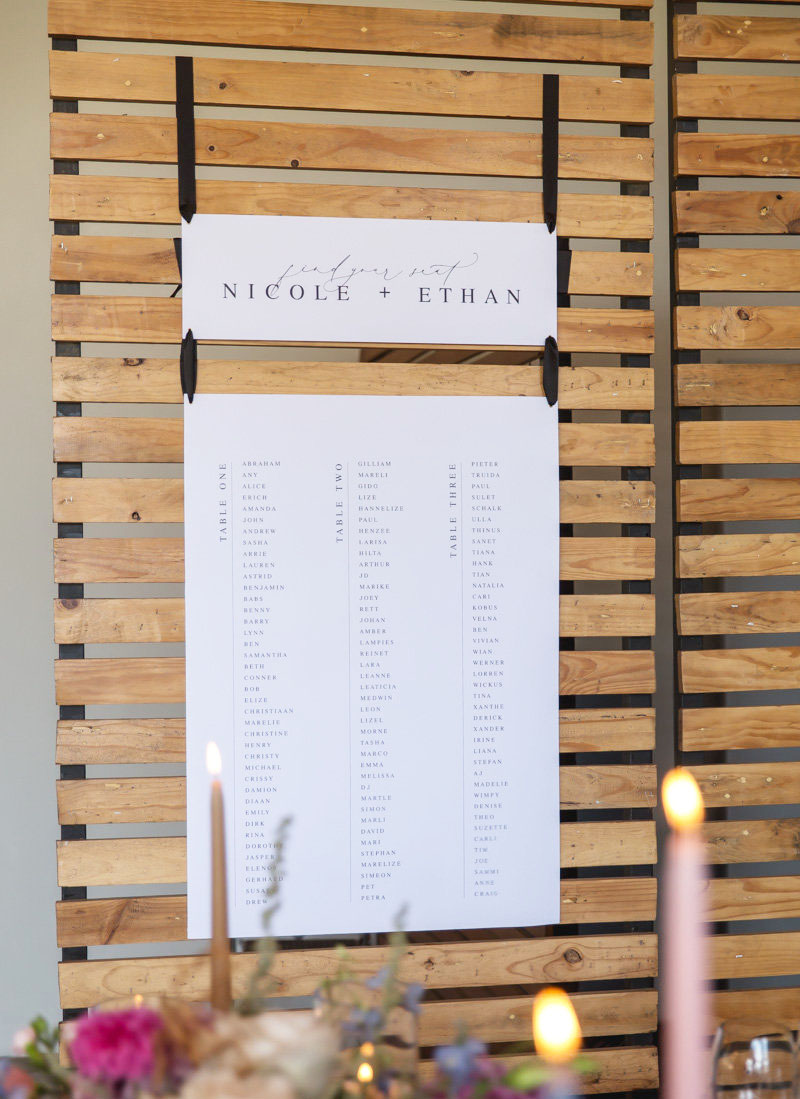 find your seat
NICOLE + ETHAN
TABLE ONE
ABRAHAM
ANY
ALICE
ERICH
AMANDA
JOHN
ANDREW
SASHA
ABRIE
LAUREN
ASTRID
BENJAMIN
BABS
BENNY
BARRY
LYNN
BEN
SAMANTHA
BETH
CONNER
BOB
ELIZE
CHRISTIAAN
MARELIE
CHRISTINE
HENRY
CHRISTY
MICHAEL
CRISSY
DAMION
DIAAN
EMILY
DIRK
RINA
JASPER
GERHARD
DREW
TABLE TWO
GILLIAM
MARELI
GIDO
LIZE
HANNELIZE
PAUL
HENZEE
LARISA
HILTA
ARTHUR
JD
MARIKE
JOEY
RETT
JOHAN
AMBER
LAMPIES
REINET
LARA
LEANNE
LEATICIA
MEDWIN
LEON
LIZEL
MORNE
TASHA
MARCO
EMMA
MELISSA
DJ
MARTLE
SIMON
MARLI
DAVID
MARI
STEPHAN
MARELIZE
SIMEON
PET
PETRA
TABLE THREE
PIETER
TRUIDA
PAUL
SULET
SCHALK
ULLA
THINUS
SANET
TIANA
HANK
TIAN
NATALIA
CARI
KOBUS
VELNA
BEN
VIVIAN
WIAN
WERNER
LORREN
WICKUS
TINA
XANTHE
DERICK
XANDER
IRINE
LIANA
STEFAN
AJ
MADELIE
WIMPY
DENISE
THEO
SUZETTE
CARLI
TIM
JOE
SAMMI
ANNE
CRAIG